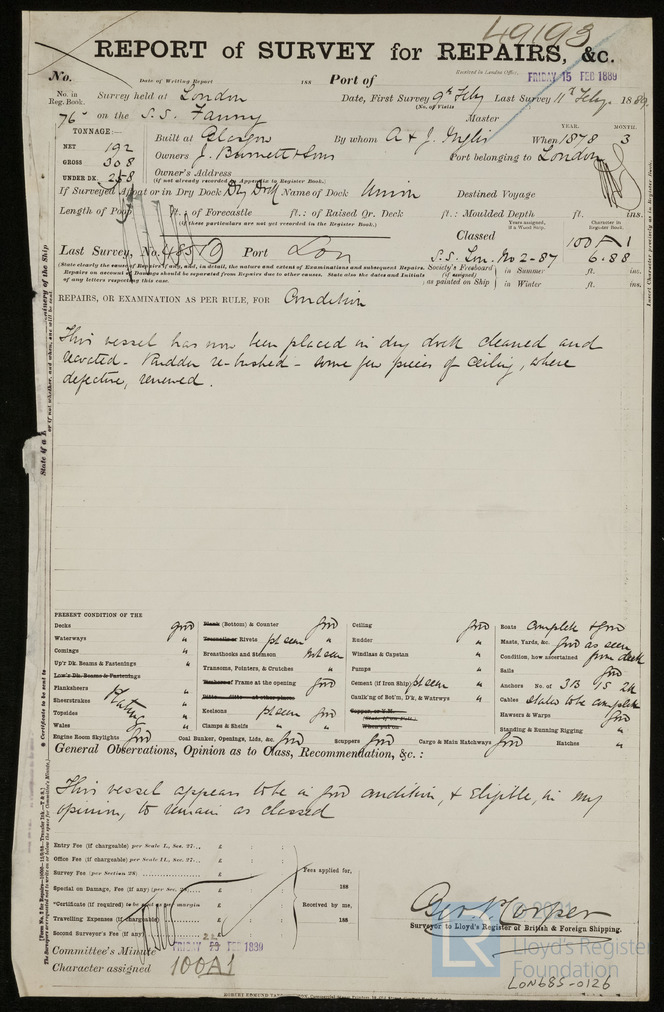 49193
REPORT of SURVEY for REPAIRS, &c.
No.
Date of Writing Report 188 Port of
Received in London Office, FRIDAY 15 FEB 1889
No. in Reg. Book. Survey held at London Date, First Survey 9th Feby Last Survey 11th Feby. 1889
(No. of Visits)
76 on the S.S. Fanny Master
TONNAGE:— Built at Glasgow By whom A & J. Inglis When 1878 3
YEAR. MONTH.
NET 192
GROSS 308
UNDER DK. 258
Owners J. Burnett & Sons Port belonging to London
Owner's Address
(if not already recorded in Appendix to Register Book.)
If Surveyed Afloat or in Dry Dock Dry Dock Name of Dock Union Destined Voyage
Length of Poop ft.: of Forecastle ft.: of Raised Qr. Deck ft.: Moulded Depth ft. ins.
(if these particulars are not yet recorded in the Register Book.)
Years assigned, if a Wood Ship. Character in Register Book.
Classed 100A1
Last Survey, No. 48519 Port Lon S.S. Lon. No 2-87 6.88
(State clearly the cause of Repairs if any, and, in detail, the nature and extent of Examinations and subsequent Repairs.
Repairs on account of Damage should be separated from Repairs due to other causes. State also the dates and Initials
of any letters respecting this case.
Society's Freeboard (if assigned) as painted on Ship in Summer ft. ins.
in Winter ft. ins.
REPAIRS, OR EXAMINATION AS PER RULE, FOR Condition
This vessel has now been placed in dry dock cleaned and
recoated - Rudder re-bushed - some few pieces of Ceiling, where
defective, renewed.
PRESENT CONDITION OF THE
Decks good
Waterways "
Comings "
Up'r Dk. Beams & Fastenings "
Low'r Dk. Beams & Fastenings
Planksheers
Sheerstrakes Plating
Topsides
Wales
Engine Room Skylights good
Plank (Bottom) & Counter good
Treenails or Rivets pt seen "
Breasthooks and Stemson not seen
Transoms, Pointers, & Crutches "
Timbers of Frame at the opening good
Ditto ditto at other places
Keelsons pt seen good
Clamps & Shelfs " "
Coal Bunker, Openings, Lids, &c. good
Ceiling good
Rudder "
Windlass & Capstan "
Pumps "
Cement (if Iron Ship) pt seen "
Caulk'ng of Bot'm, D'k, & Watrwys "
Copper, or Y.M.
Scuppers good
Cargo & Main Hatchways good
Boats complete & good
Masts, Yards, &c. good as seen
Condition, how ascertained from deck
Sails good
Anchors No. of 3B 1S 2K
Cables stated to be complete
Hawsers & Warps good
Standing & Running Rigging "
Hatches "
General Observations, Opinion as to Class, Recommendation, &c. :
This vessel appears to be in good condition, & Eligible, in my
opinion, to remain as classed
Entry Fee (if chargeable) per Scale I., Sec. 27... £ : :
Office Fee (if chargeable) per Scale II., Sec. 27... £ : :
Survey Fee (per Section 28) £ : :
Special on Damage, Fee (if any) (per Sec. 28) £ : :
*Certificate (if required) to be sent as per margin
Travelling Expenses (if chargeable) £ : :
Second Surveyor's Fee (if any) £
Fees applied for, 188
Received by me, 188
Geo. P. Cooper
Surveyor to Lloyd's Register of British & Foreign Shipping.
Committee's Minute FRIDAY 22 FEB 1889
Character assigned 100A1
Lloyd's Register
Foundation
LON685-0126